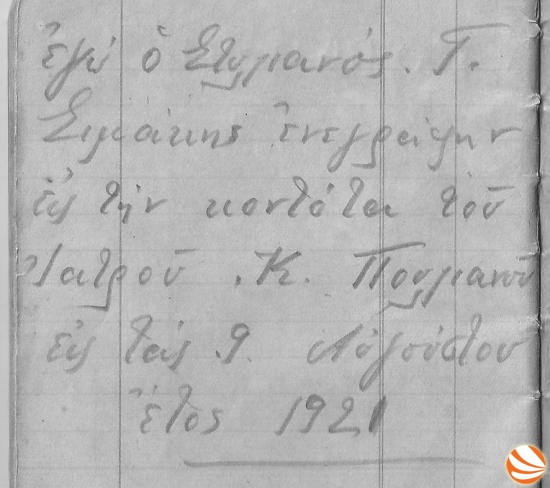 ἐγώ ὁ Στυλιανός. Γ.
Σιμάκης ἐνεγράφην
εἰς τήν κοντότα τοῦ
Ἰατροῦ .Κ. Πουλιανοῦ
εἰς τάς 9. Αὐγούστου
ἔτος 1921